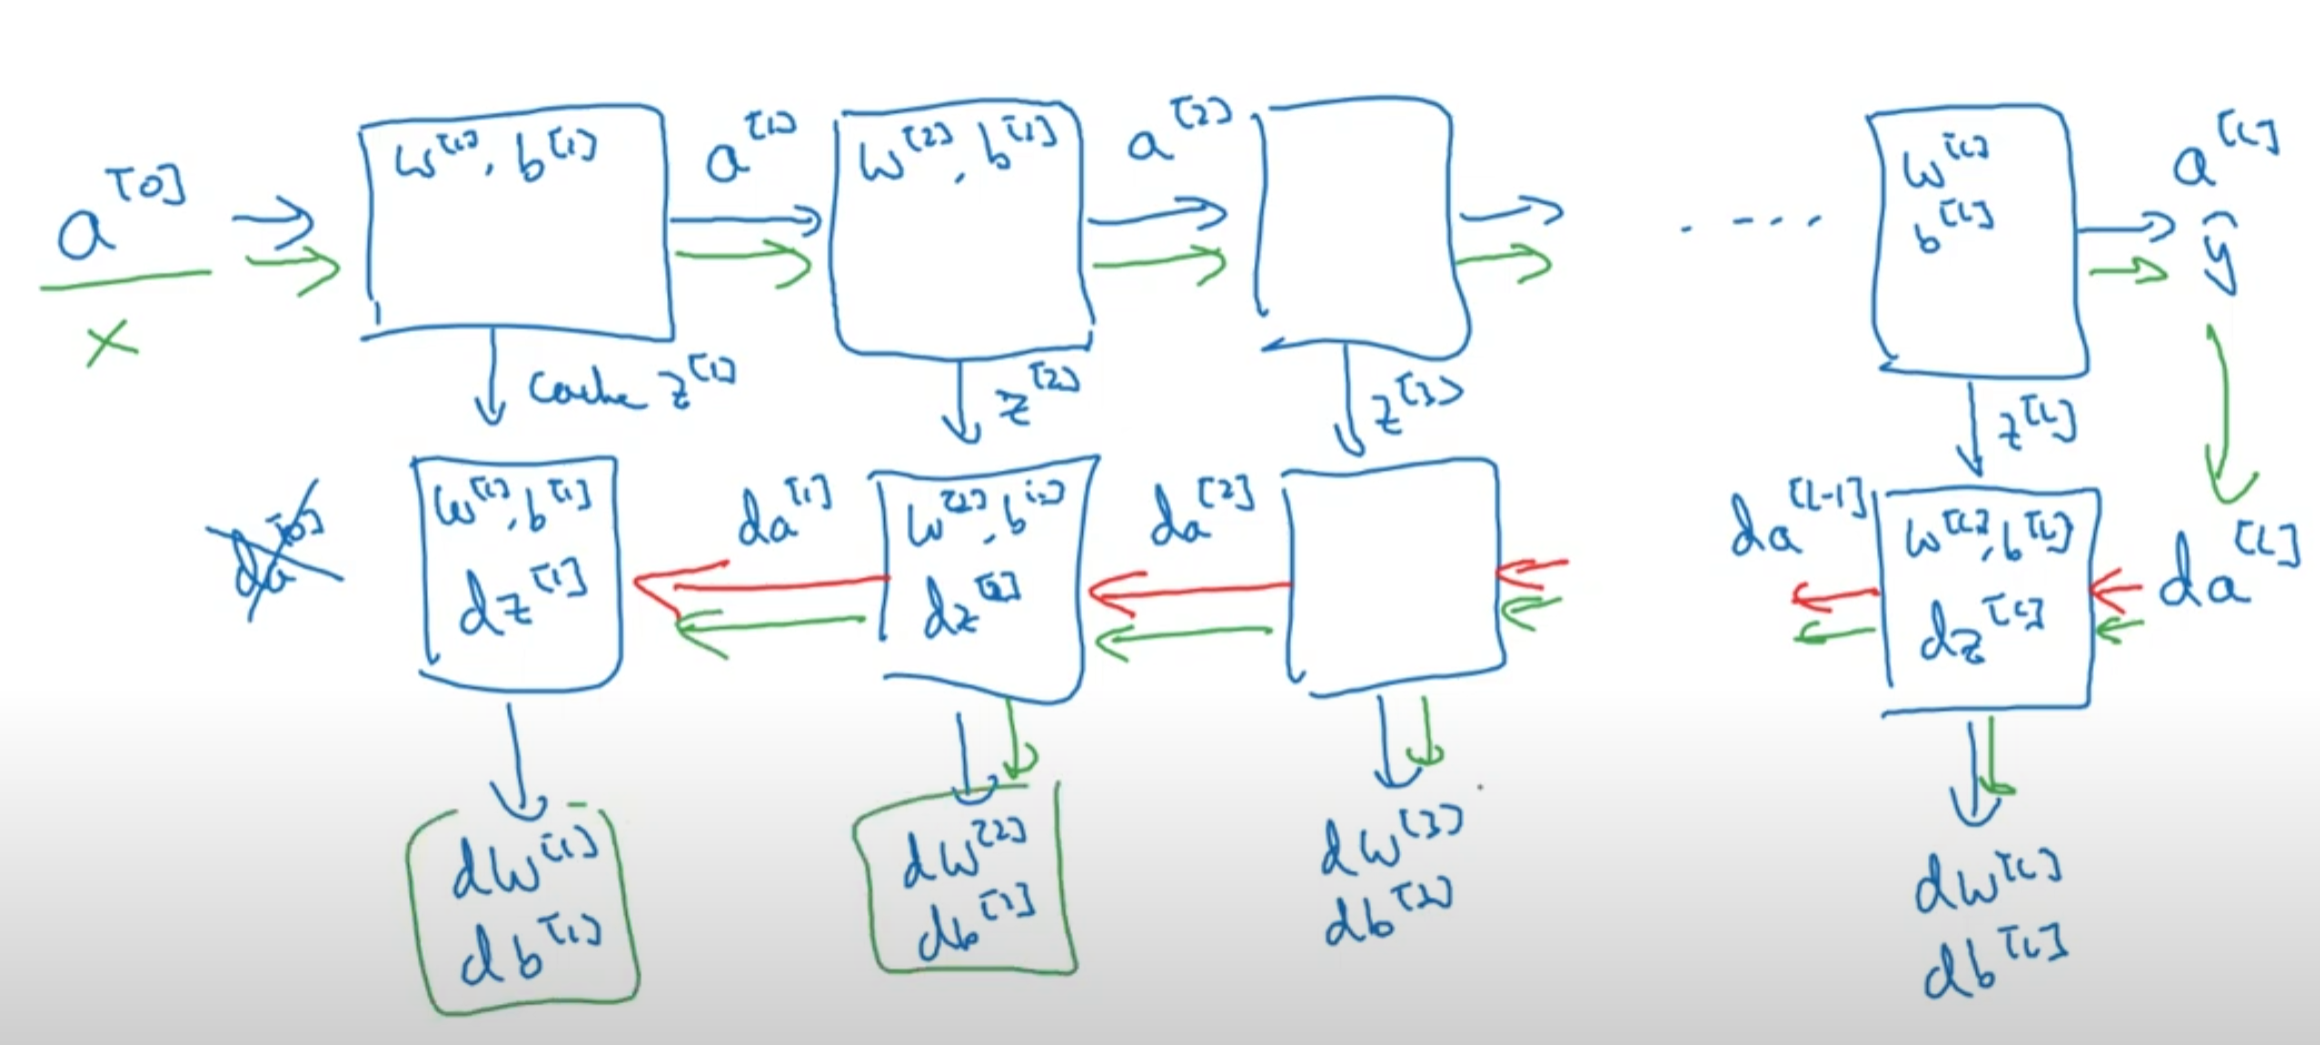 a^[0]
x
w^[1], b^[1]
a^[1]
w^[2], b^[1]
a^[2]
....
w^[L]
b^[L]
a^[L]
ŷ
cache z^[1]
z^[2]
z^[3]
z^[L]
da^[0]
w^[1], b^[1]
dz^[1]
da^[1]
w^[2], b^[2]
dz^[2]
da^[2]
da^[L-1]
w^[L], b^[L]
dz^[L]
da^[L]
dw^[1]
db^[1]
dw^[2]
db^[2]
dw^[3]
db^[3]
dw^[L]
db^[L]